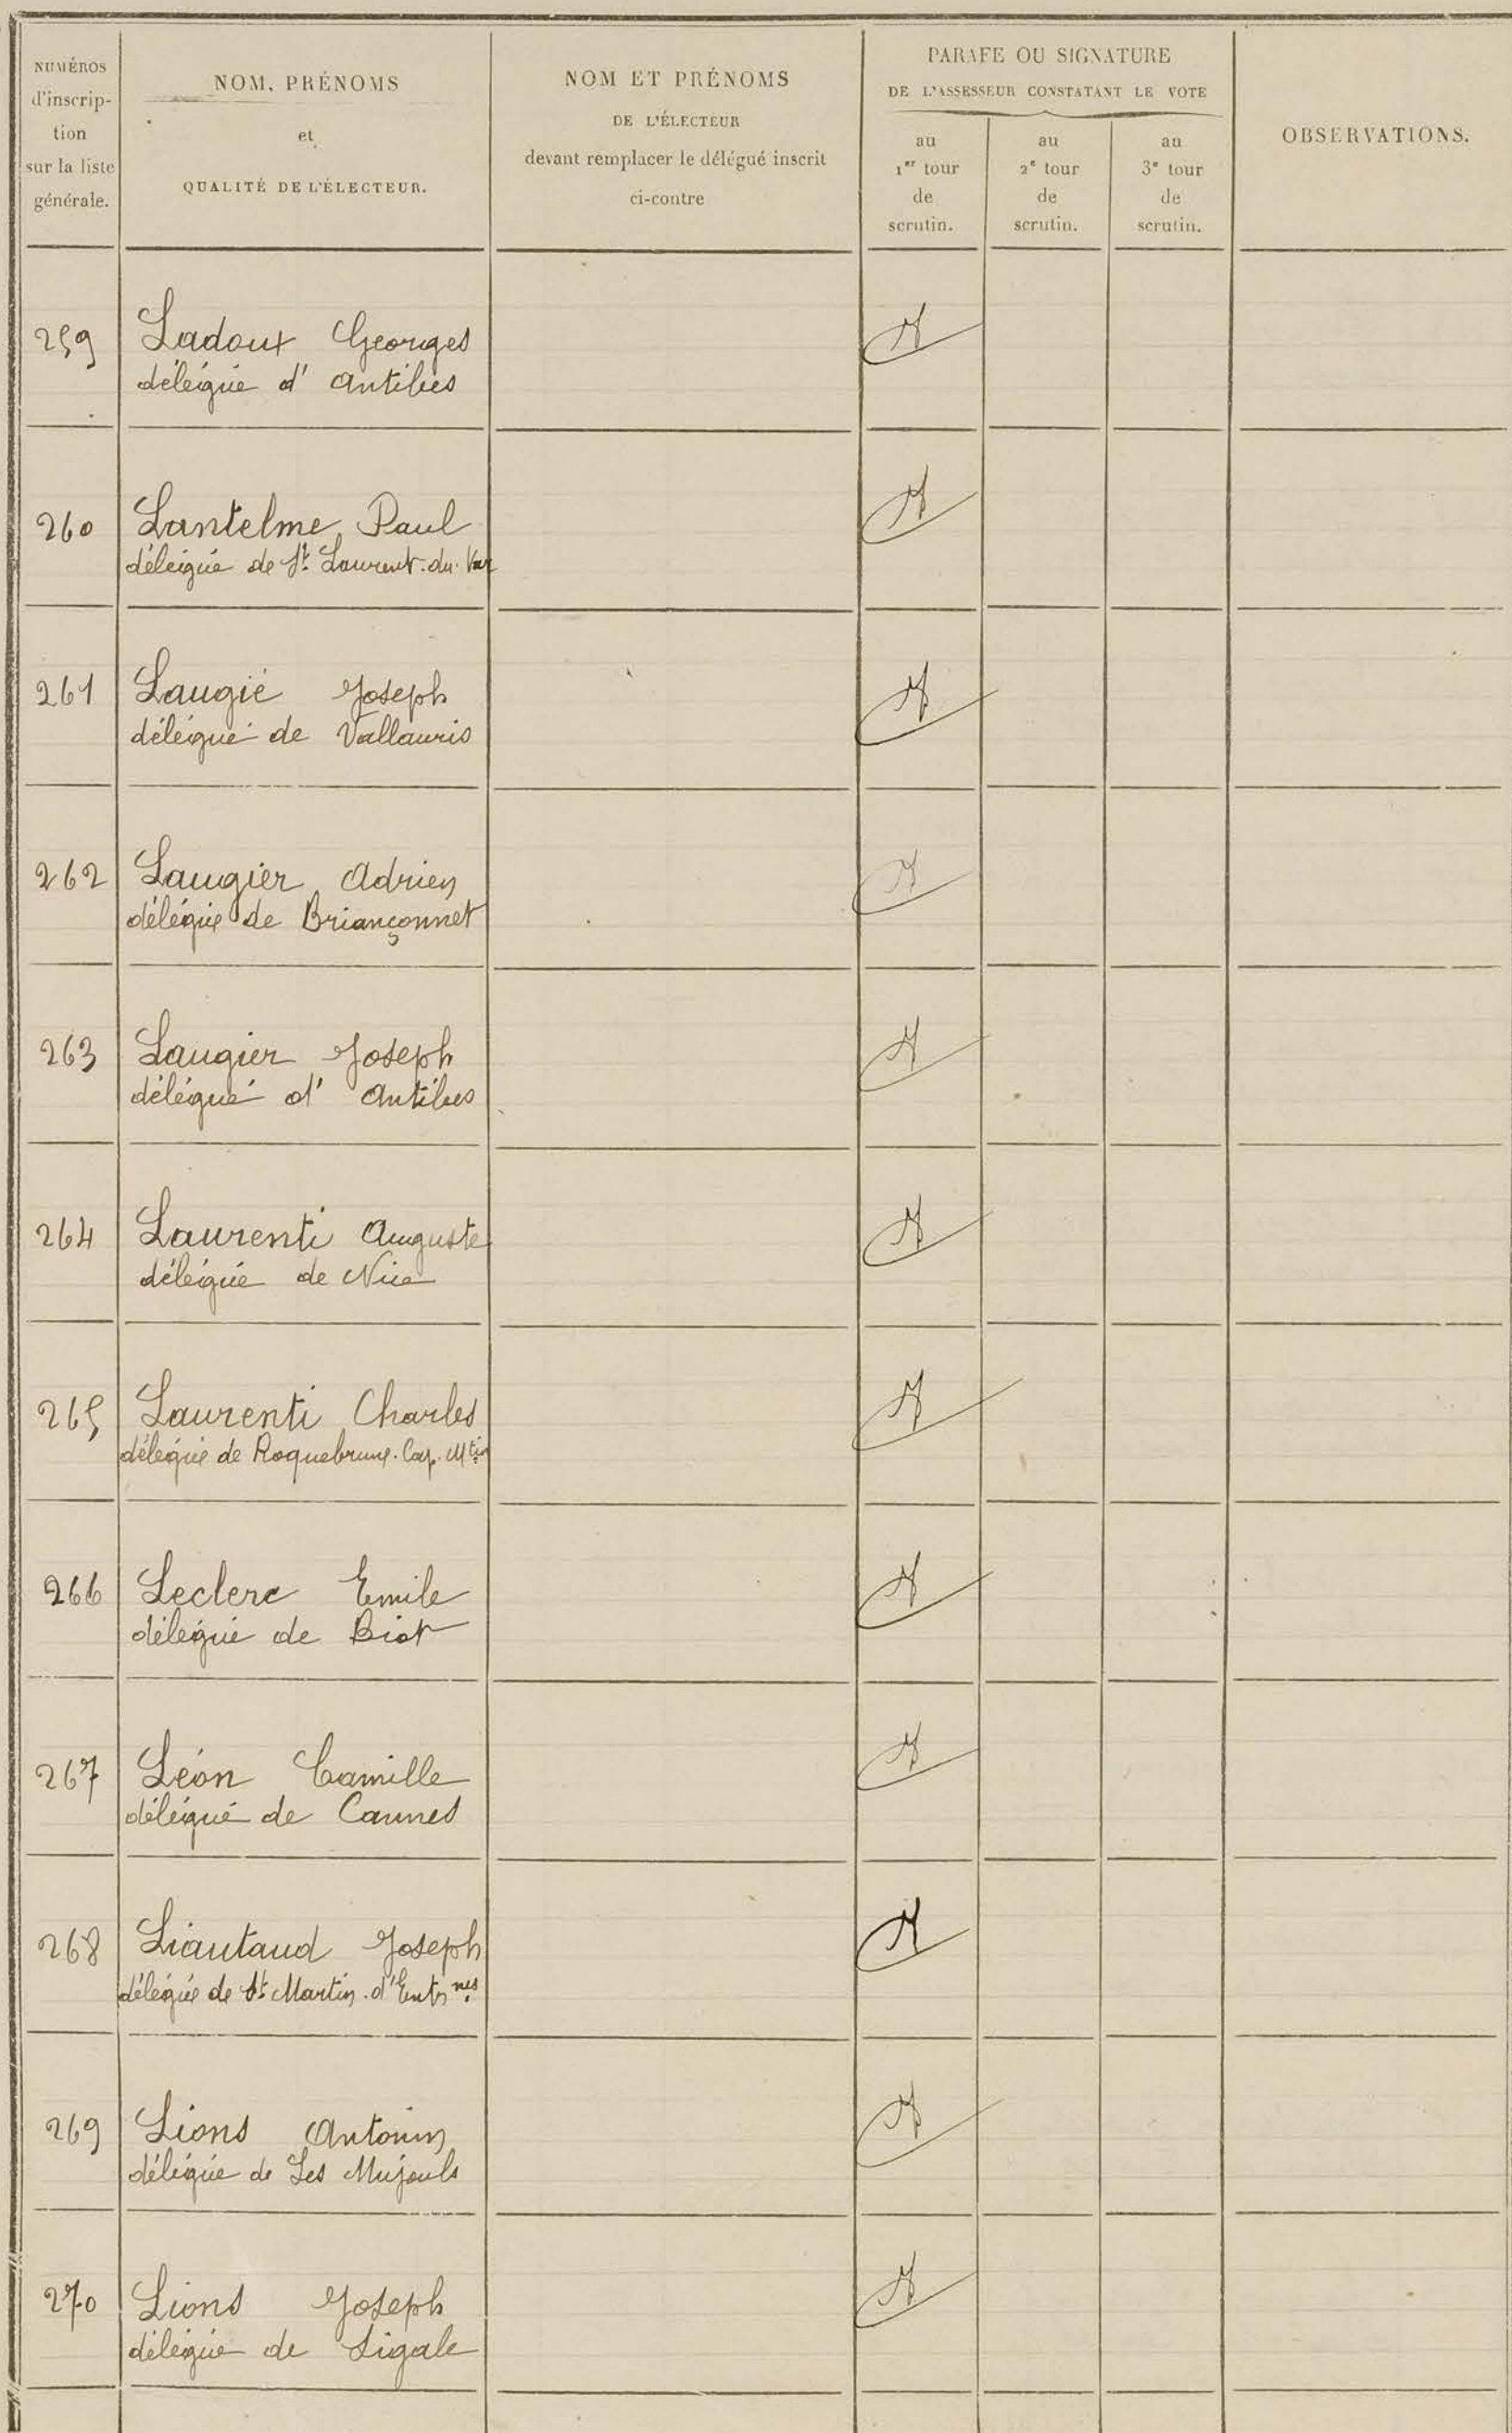 NUMÉROS
d'inscrip-
tion
sur la liste
générale.
NOM, PRÉNOMS
et
QUALITÉ DE L'ÉLECTEUR.
NOM ET PRÉNOMS
DE L'ÉLECTEUR
devant remplacer le délégué inscrit
ci-contre
PARAFE OU SIGNATURE
DE L'ASSESSEUR CONSTATANT LE VOTE
au
1er tour
de
scrutin.
au
2e tour
de
scrutin.
au
3e tour
de
scrutin.
OBSERVATIONS.
259 Ladoux Georges
délégué d'Antibes
260 Lantelme Paul
délégué de St. Laurent-du-Var
261 Laugié Joseph
délégué de Vallauris
262 Laugier Adrien
délégué de Briançonnet
263 Laugier Joseph
délégué d'Antibes
264 Laurenti Auguste
délégué de Nice
265 Laurenti Charles
délégué de Roquebrune-Cap-Mtin
266 Leclerc Emile
délégué de Biot
267 Léon Camille
délégué de Cannes
268 Liautaud Joseph
délégué de St. Martin-d'Entrnes
269 Lions Antonin
délégué de Les Mujouls
270 Lions Joseph
délégué de Sigale